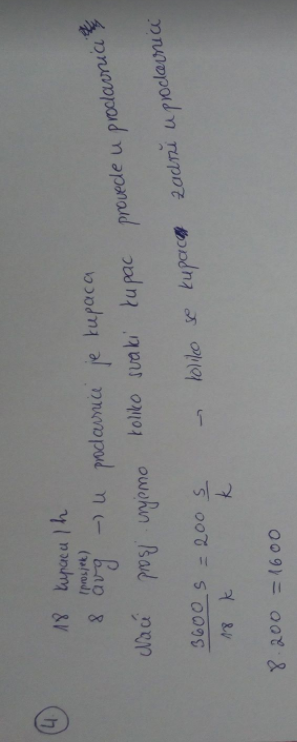 4.
18 kupaca / h
(prosjek)
8 avg → u prodavnici je kupaca
Naći prosj. vrijeme koliko svaki kupac provede u prodavnici
3600 s / 18 k = 200 s/k → koliko se kupac zadrži u prodavnici
8 · 200 = 1600